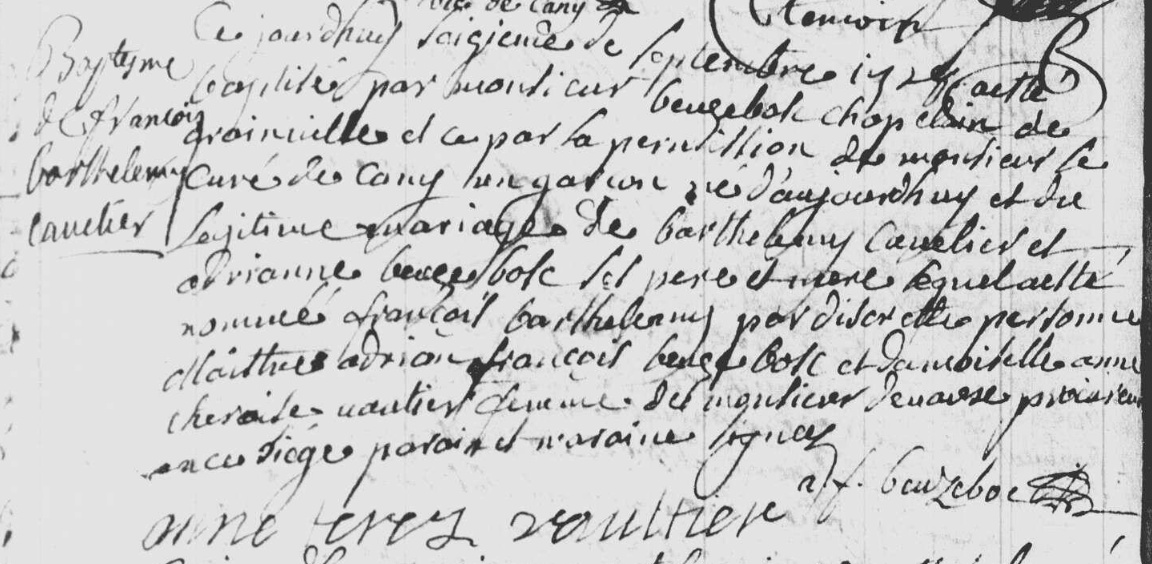 vic de Cany
temoin
Baptesme
de françois
barthelemy
cavelier
Ce jourdhuy seizieme de septembre 172 a esté
baptisé par monsieur beuzebosc chapelain de
grainville et ce par la permission de monsieur le
curé de Cany un garcon né d'aujourdhuy et du
legitime mariage de barthelemy cavelier et
adrianne beuzebosc ses pere et mere lequel a esté
nommé françois barthelemy par discrette personne
Maistre adrian françois beuzebosc et damoiselle anne
theraise vautier femme de monsieur procureur
en ce siege parain et maraine signés
a f. beuzeboc
anne terez vaultier